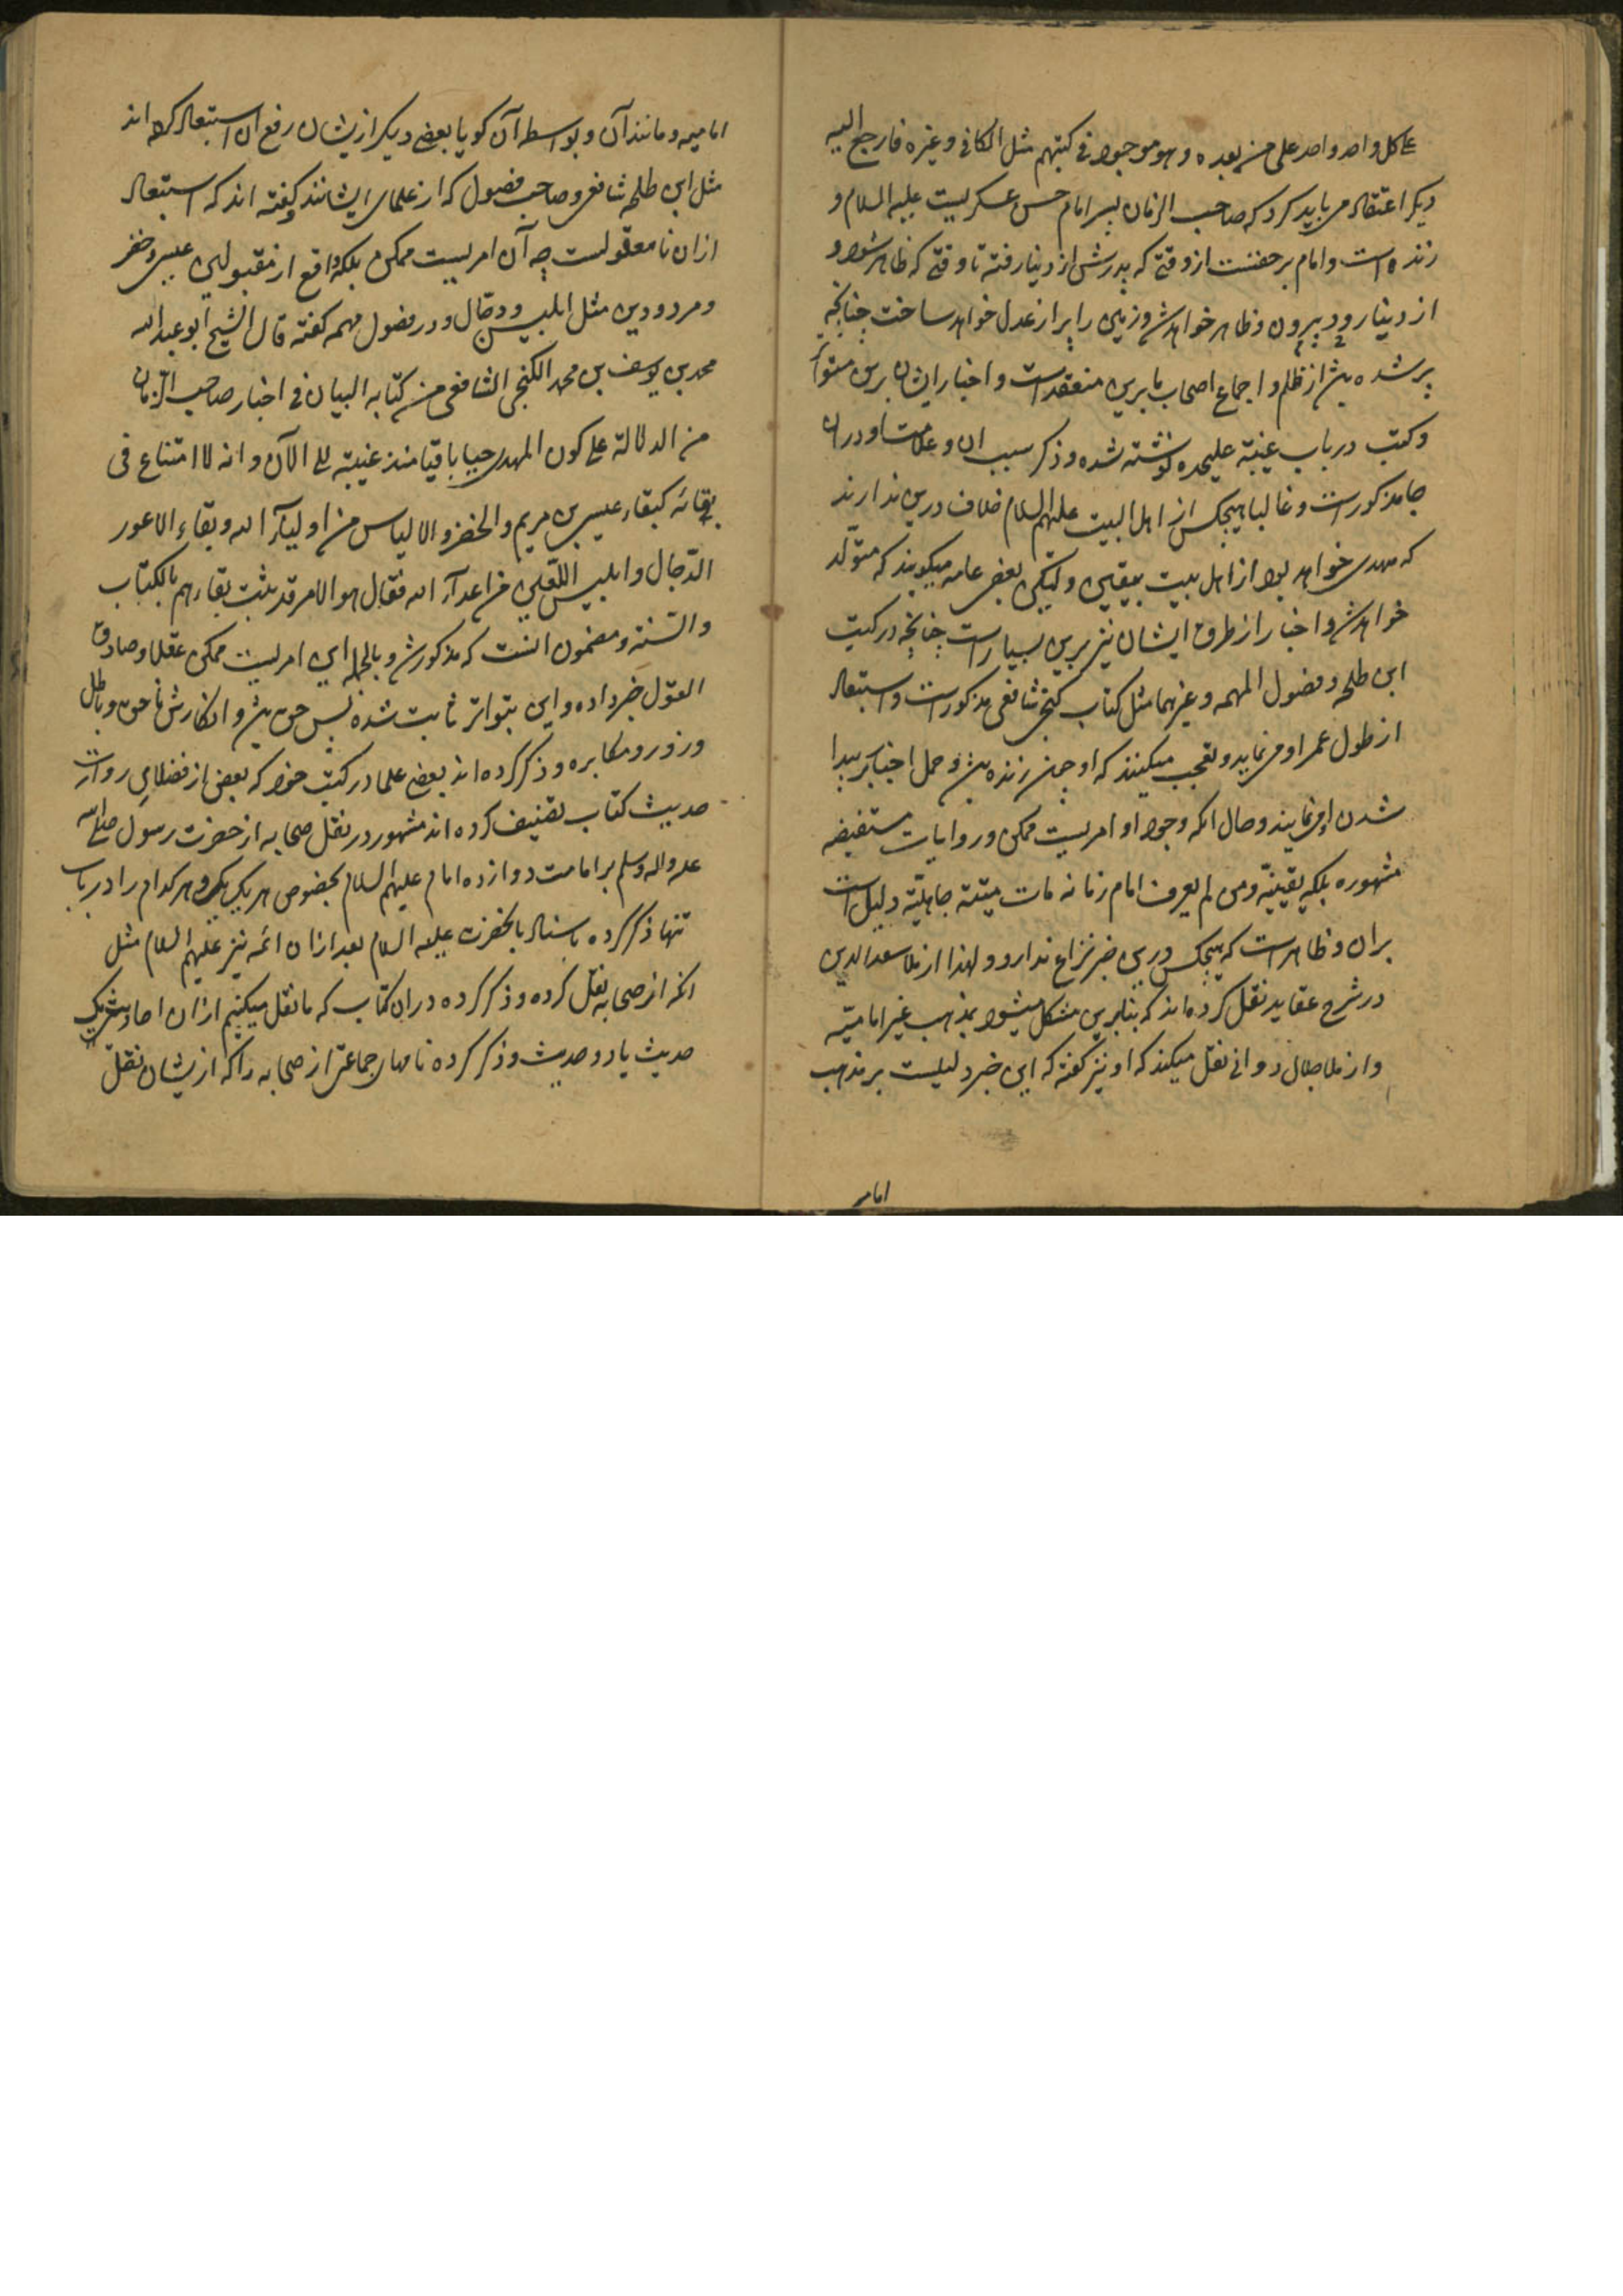 علی کل واحد واحد علی من بعده و هو موجود فی کتبهم مثل الکافی و غیره فارجع الیه
دیگر اعتقاد می باید کرد که صاحب الزمان پسر امام حسن عسکریست علیه السلام و
زنده است و امام بر حقست از وقتی که پدرش از دنیا رفته تا وقتی که ظاهر شود و
از دنیا رود بیرون و ظاهر خواهد شد و زمین را پر از عدل خواهد ساخت چنانچه
پر شده باشد از ظلم و اجماع اصحاب ما برین منعقد است و اخبار ایشان برین متواتر
و کتب در باب غیبة علیحده نوشته شده و ذکر سبب ان و علامت او دران
جا مذکور است و غالبا هیچکس از اهل البیت علیهم السلام خلاف درین ندارند
که مهدی خواهد بود از اهل بیت بیقین ولیکن بعضی عامه میگویند که متولد
خواهد شد و اخبار از طرق ایشان نیز برین بسیار است چنانچه در کتب
ابن طلحه و فصول المهمه و غیرهما مثل کتاب کنجی شافعی مذکور است و استبعاد
از طول عمر او می نماید و تعجب میکنند که او چون زنده باشد و حمل اخبار بر پیدا
شدن او می نمایند و حال انکه وجود او امریست ممکن و روایات مستفیضه
مشهوره بلکه یقینیّه و من لم یعرف امام زمانه مات میتة جاهلیّة دلیل است
بران و ظاهر است که هیچکس درین خبر نزاع ندارد و لهذا از ملا سعد الدین
در شرح عقاید نقل کرده اند که بنابرین مشکل میشود مذهب غیر امامیّه
و از ملا جلال دوانی نقل میکند که او نیز گفته که این خبر دلیلست بر مذهب
امامیه
امامیه و مانند آن و بواسطه آن گویا بعضی دیگر ازیشان رفع ان استبعاد کرده اند
مثل ابن طلحه شافعی و صاحب فصول که از علمای ایشانند و گفته اند که استبعاد
ازان نا معقولست چه آن امریست ممکن بلکه واقع از مقبولین عیسی و خضر
و مردودین مثل ابلیس و دجّال و در فصول مهمه گفته قال الشیخ ابو عبد الله
محمد بن یوسف بن محمد الکنجی الشافعی من کتابه البیان فی اخبار صاحب الزمان
من الدلالة علی کون المهدی حیا باقیا منذ غیبته الی الآن و انه لا امتناع فی
بقائه کبقاء عیسی بن مریم و الخضر و الالیاس من اولیآء الله و بقاء الاعور
الدّجال و ابلیس اللعین من اعدآء الله فقال هو الامر قد ثبت بقاءهم بالکتاب
و السّنة و مضمون انست که مذکور شد و بالجمله این امریست ممکن عقلا و صادق
القول خبر داده و این بتواتر ثابت شده پس حق باشد و انکارش ناحق و باطل
و زور و مکابره و ذکر کرده اند بعضی علما در کتب خود که بعضی از فضلای روات
حدیث کتاب تصنیف کرده اند مشهور در نقل صحابه از حضرت رسول صلی الله
علیه و اله و سلم بر امامت دوازده امام علیهم السلام بخصوص هر یک یک و هر کدام را در باب
تنها ذکر کرده باسناد بانحضرت علیه السلام بعد ازان ائمه نیز علیهم السلام مثل
انکه از صحابه نقل کرده و ذکر کرده دران کتاب که ما نقل میکنیم ازان احادیث یک
حدیث یا دو حدیث و ذکر کرده نامهای جماعتی از صحابه را که ازیشان نقل